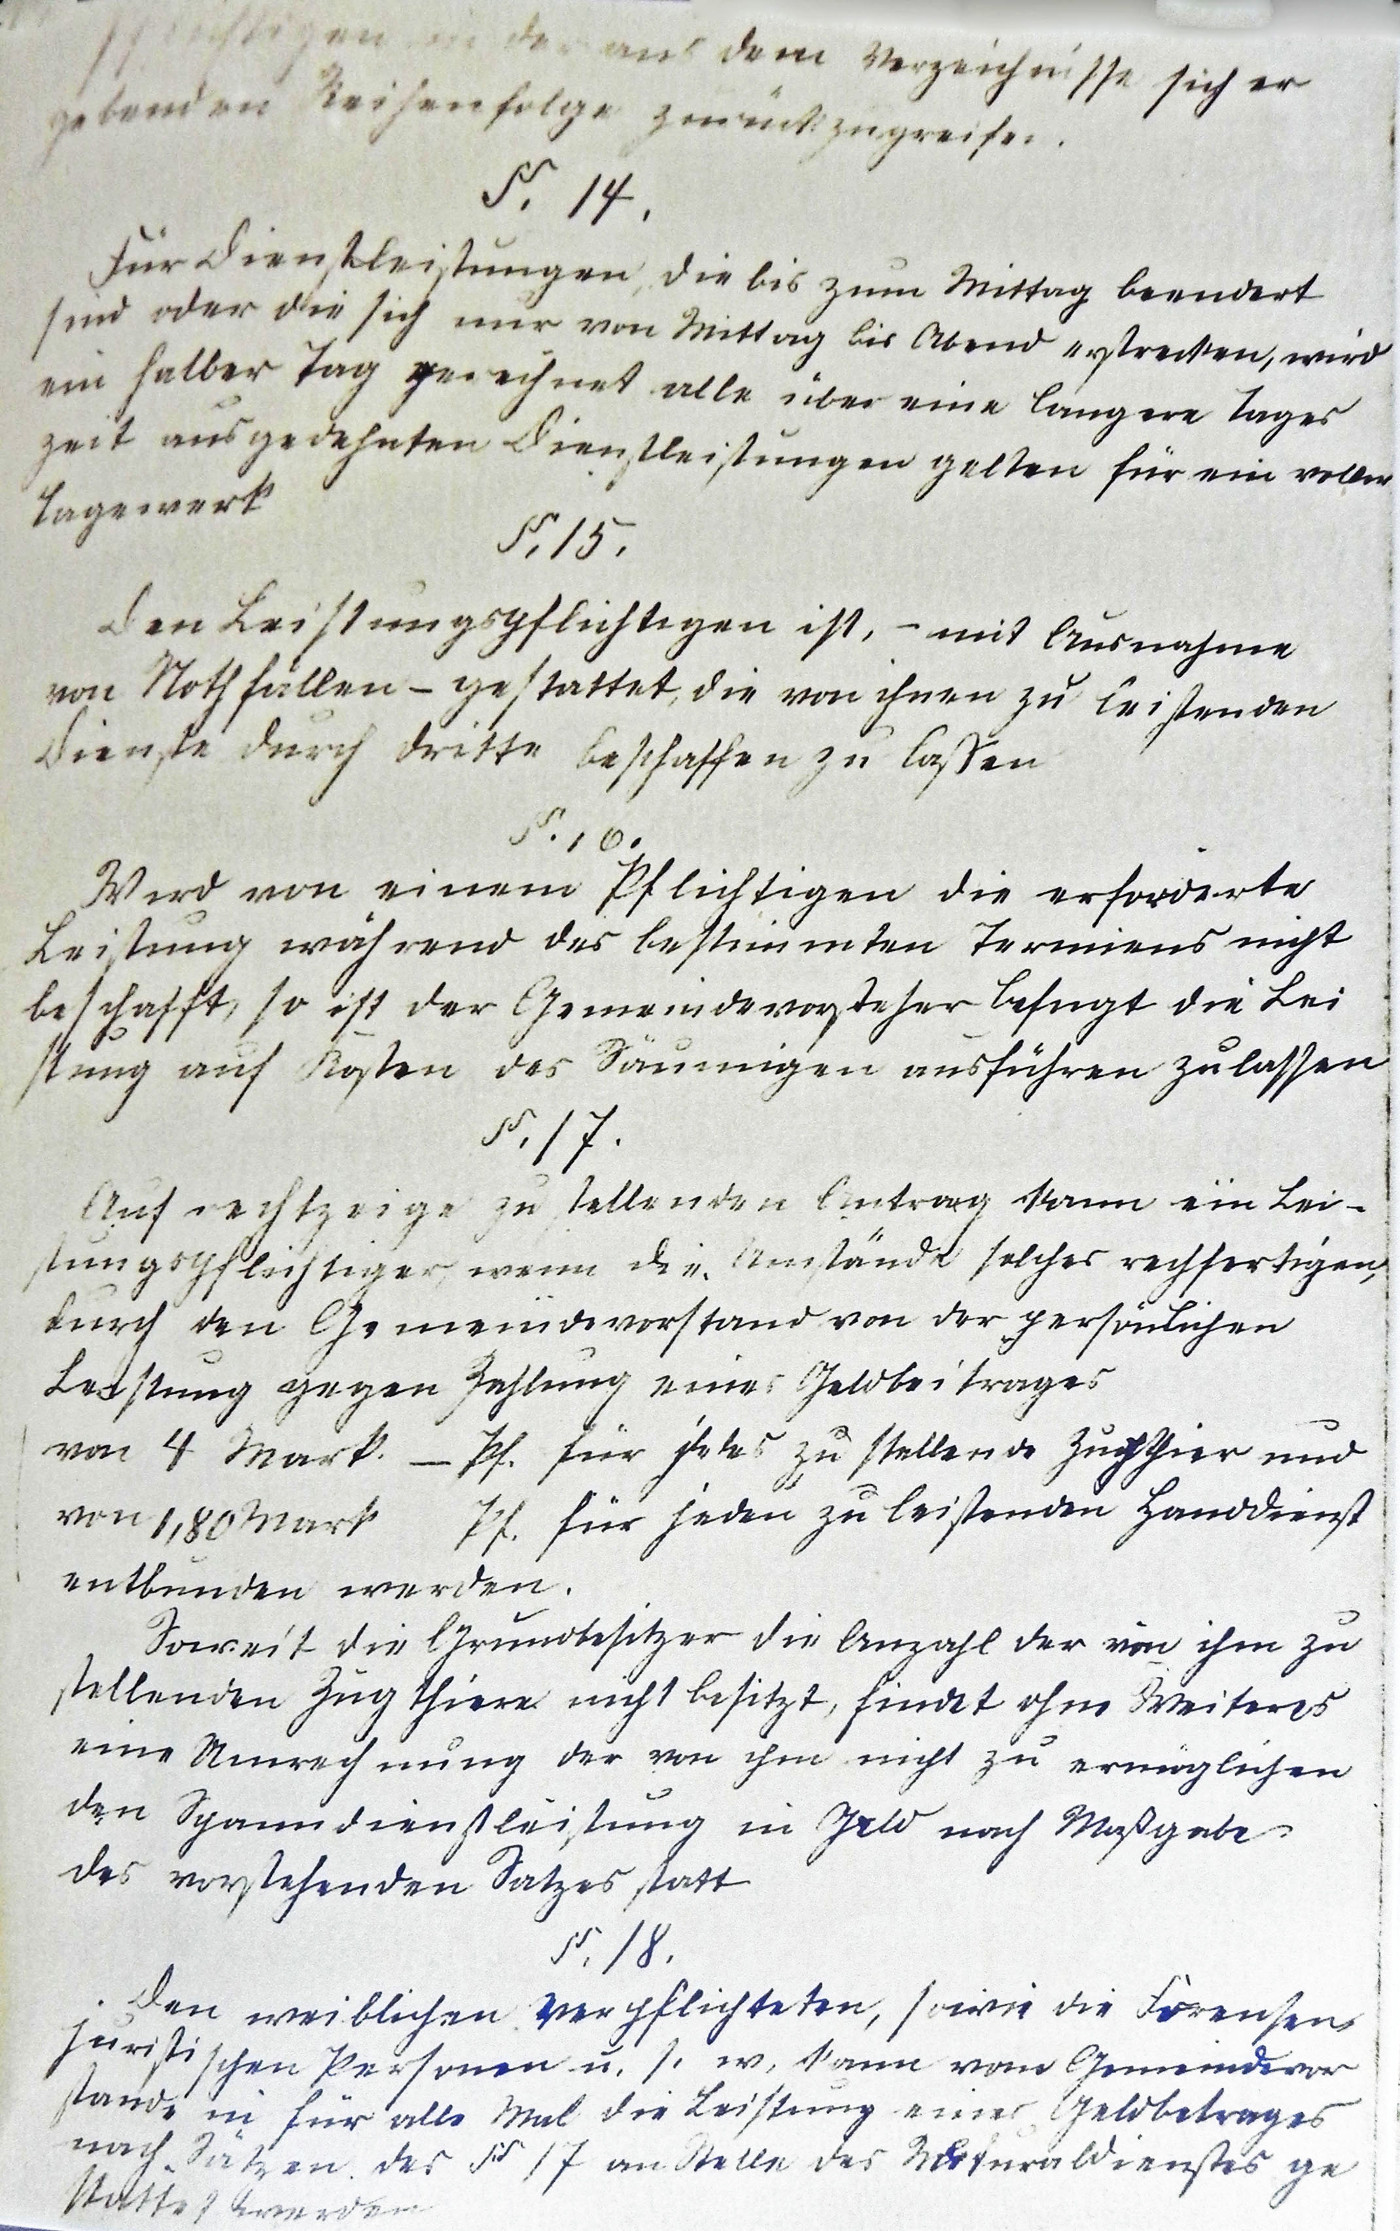 pflichtigen in der aus dem Verzeichnisse sich er
gebenden Reihenfolge zurückzugreifen.
§. 14.
Für Dienstleistungen, die bis zum Mittag beendert
sind oder die sich nur von Mittag bis Abend erstrecken, wird
ein halber Tag gerechnet alle über eine langere Tages
zeit ausgedehnten Dienstleistungen gelten für ein voller
Tagewerk
§. 15.
Den Leistungspflichtigen ist, – mit Ausnahme
von Nothfällen – gestattet, die von ihnen zu leistenden
Dienste durch dritte beschaffen zu lassen
§. 16.
Wird von einem Pflichtigen die erforderte
Leistung während des bestimmten Termiens nicht
beschafft, so ist der Gemeindevorsteher befugt die Lei
stung auf Kosten des Säumigen ausführen zu lassen
§. 17.
Auf rechtzeige zu stellenden Antrag kann ein Lei-
stungspflichtiger, wenn die Umstände solches rechfertigen,
durch den Gemeindevorstand von der persönlichen
Leistung gegen Zahlung eines Geldbeitrages
von 4 Mark. — Pf. für jedes zu stellende Zugthier und
von 1,80 Mark Pf. für jeden zu leistenden Handdienst
entbunden werden.
Soweit die Grundbesitzer die Anzahl der von ihm zu
stellenden Zugthiere nicht besitzt, findet ohne Weiteres
eine Umrechnung der von ihm nicht zu ermöglichen
den Spanndienstleistung in Geld nach Maßgabe
des vorstehenden Satzes statt
§. 18.
Den weiblichen Verpflichteten, sowie die Forensen,
juristischen Personen u. s. w. kann vom Gemeindevor
stande in für alle Mal die Leistung eines Geldbetrages
nach Sätzen des § 17 an Stelle des Naturaldienstes ge
stattet werden